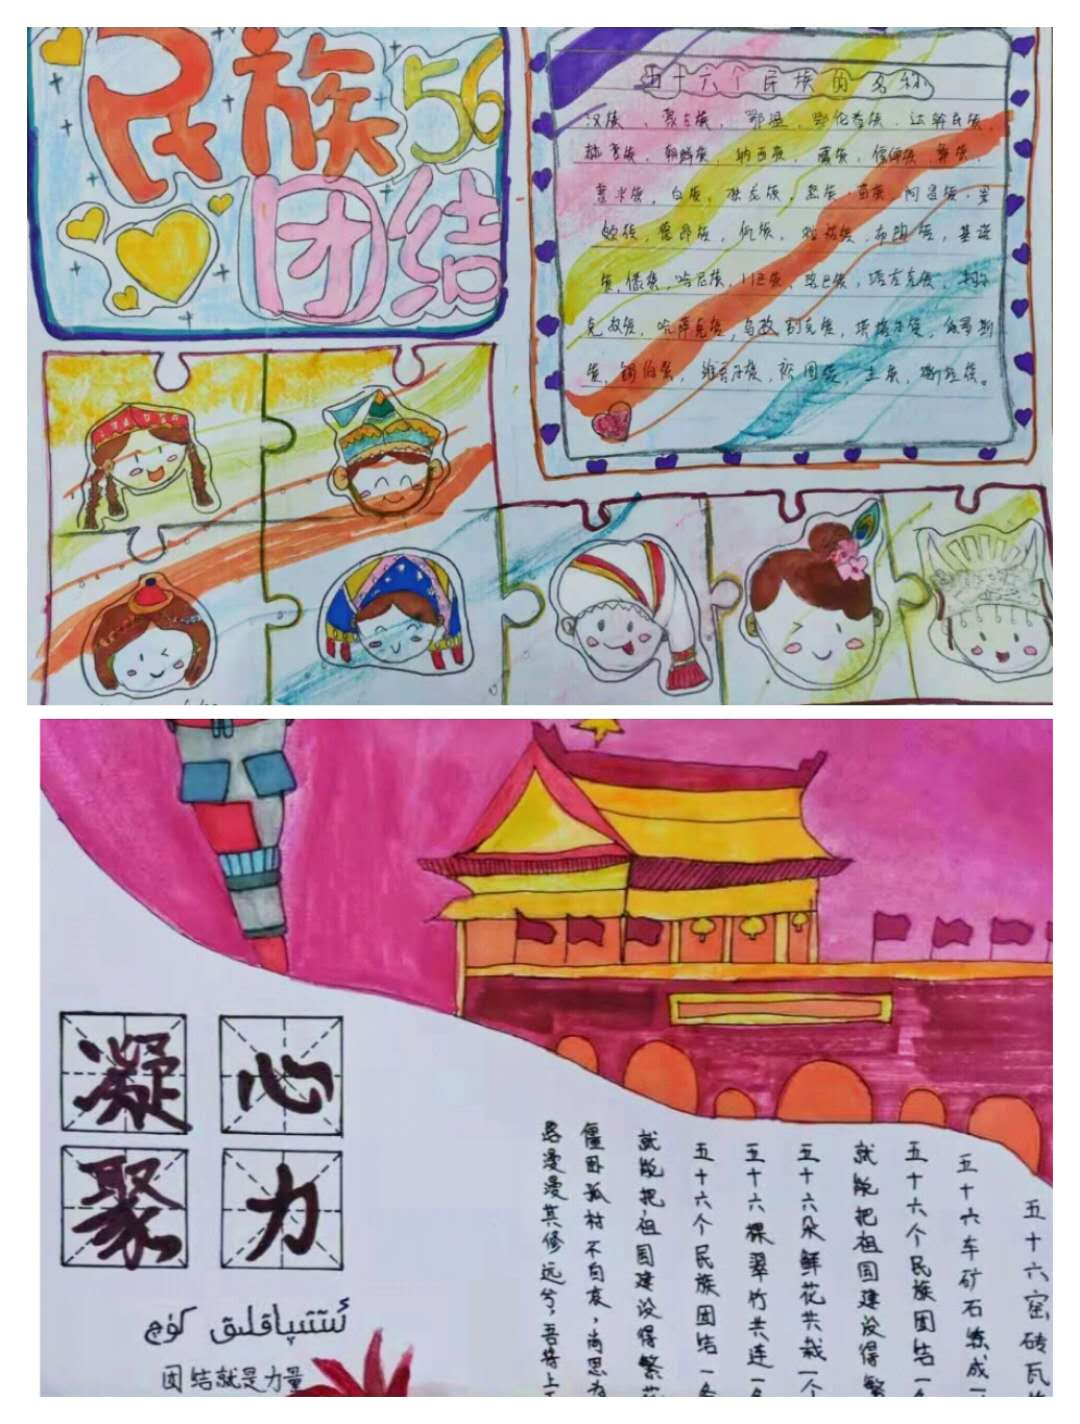 民族 56
团结
五十六个民族的名称
汉族、蒙古族、鄂温、鄂伦春族、达斡尔族、
赫哲族、朝鲜族、纳西族、藏族、傈僳族、
普米族、白族、独龙族、
族、德昂族、佤族、布朗族、基诺
族、傣族、哈尼族、门巴族、珞巴族、
克孜族、哈萨克族、乌孜别克族、塔塔尔族、俄罗斯
族、锡伯族、维吾尔族、裕固族、土族、撒拉族。
凝心
聚力
ئىتتىپاقلىق كۈچ
团结就是力量
五十六窑砖瓦
五十六车矿石炼成一
五十六个民族团结一
就能把祖国建设得繁
五十六朵鲜花共栽一个
五十六棵翠竹共连一
五十六个民族团结一条
就能把祖国建设得繁花
僵卧孤村不自哀，尚思为
路漫漫其修远兮，吾将上